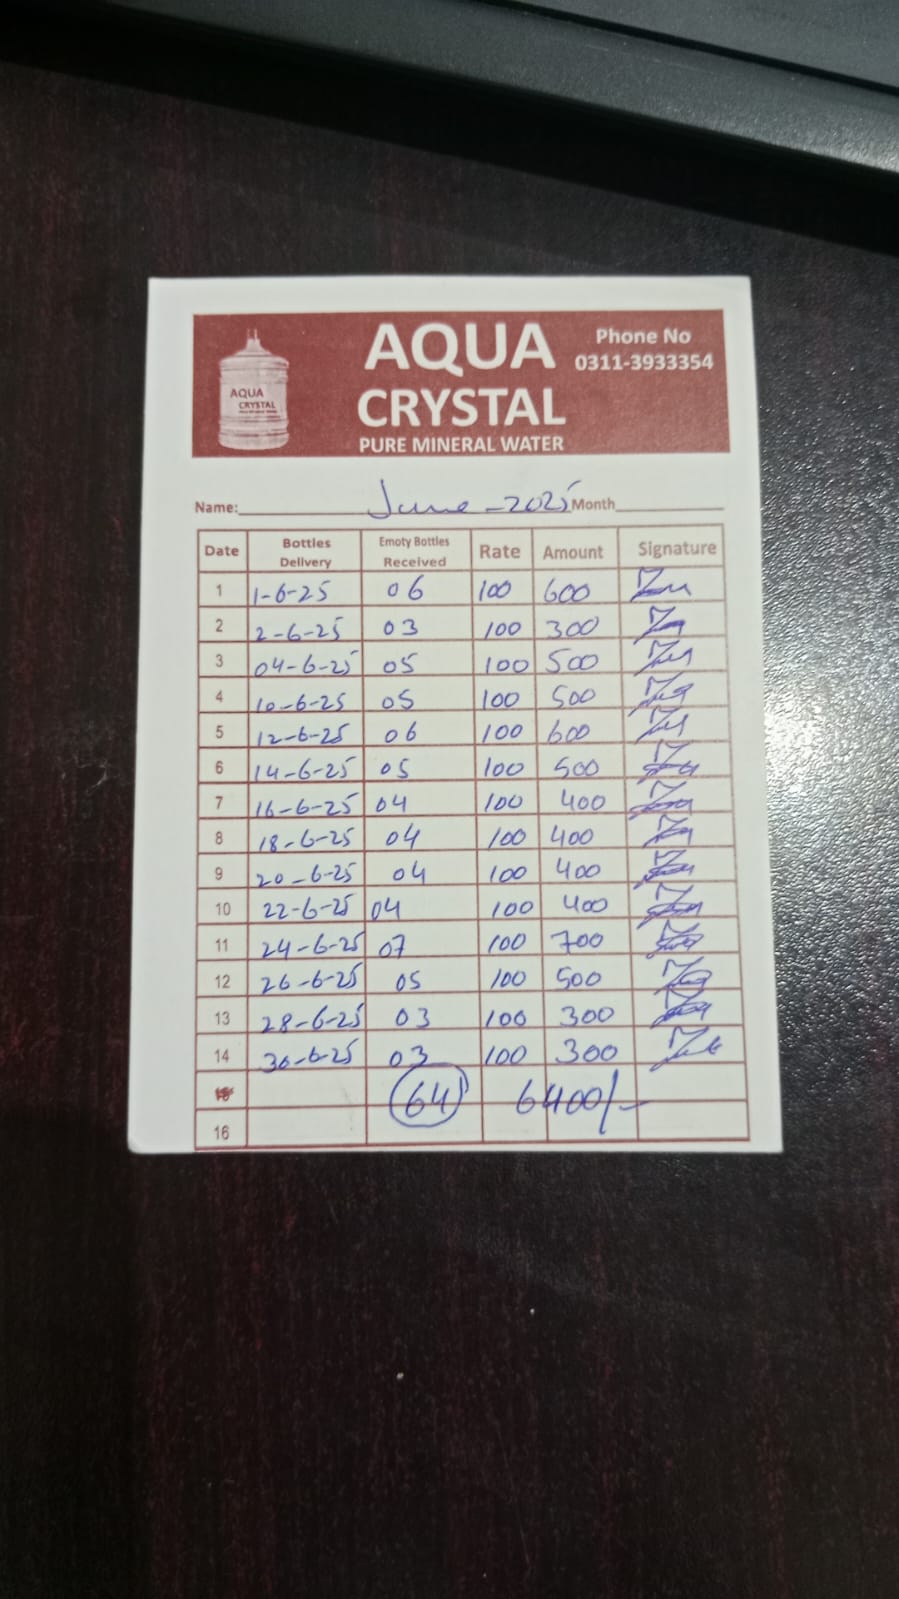 AQUA
CRYSTAL
PURE MINERAL WATER
Phone No
0311-3933354
AQUA
CRYSTAL
Name: June-2025 Month
Date Bottles Delivery Emoty Bottles Received Rate Amount Signature
1 1-6-25 06 100 600
2 2-6-25 03 100 300
3 04-6-25 05 100 500
4 10-6-25 05 100 500
5 12-6-25 06 100 600
6 14-6-25 05 100 500
7 16-6-25 04 100 400
8 18-6-25 04 100 400
9 20-6-25 04 100 400
10 22-6-25 04 100 400
11 24-6-25 07 100 700
12 26-6-25 05 100 500
13 28-6-25 03 100 300
14 30-6-25 03 100 300
64 6400/-
16